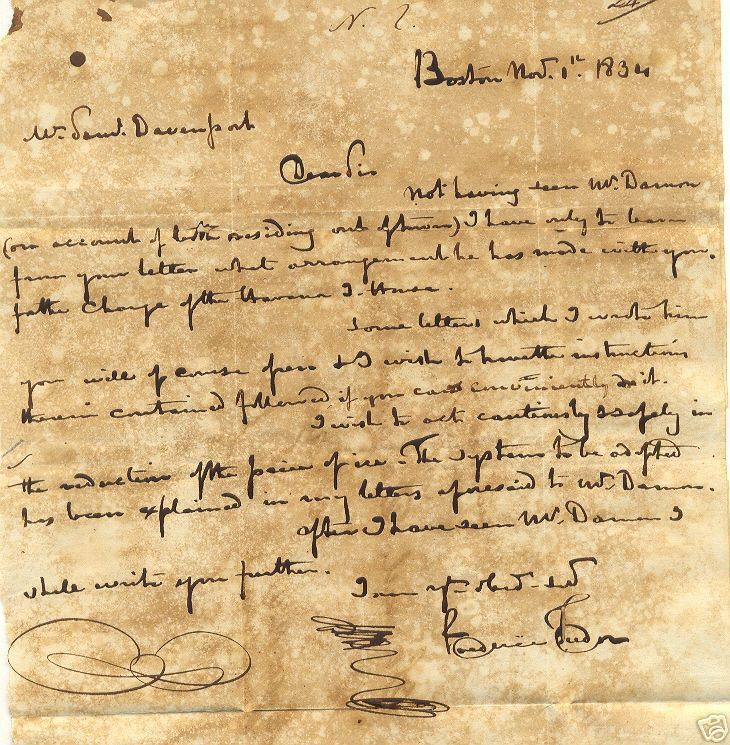 N. 2.
Boston Nov. 1st. 1834
Mr. Saml. Davenport
Dear Sir
Not having seen Mr. Damon
(on account of both residing out of town) I have only to learn
from your letter what arrangement he has made with you.
for the Charge of the Havana I-House.
Some letters which I wrote him
you will of course open & I wish to have the instructions
therein contained followed if you can conveniently do it.
I wish to act cautiously & safely in
the reduction of the price of ice - The system to be adopted
has been explained in my letters aforesaid to Mr. Damon.
after I have seen Mr. Damon I
shall write you further.
I am yr. Obed. Sed
Frederic Tudor